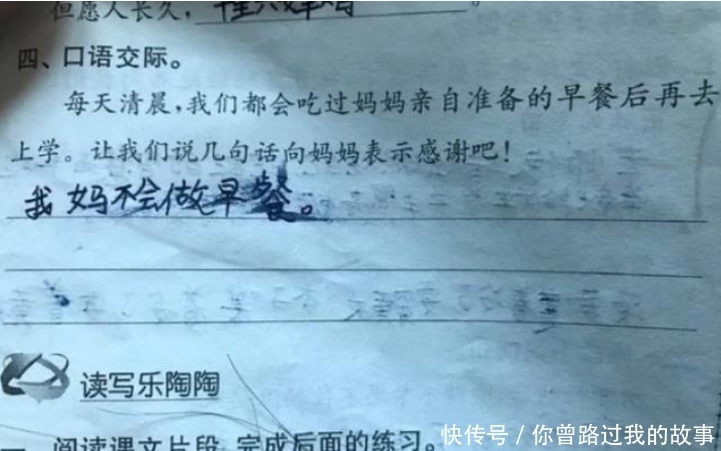 但愿人长久，千里共婵娟。
四、口语交际。
每天清晨，我们都会吃过妈妈亲自准备的早餐后再去
上学。让我们说几句话向妈妈表示感谢吧！
我妈不会做早餐。
读写乐陶陶
一 阅读课文片段，完成后面的练习。
快传号 / 你曾路过我的故事